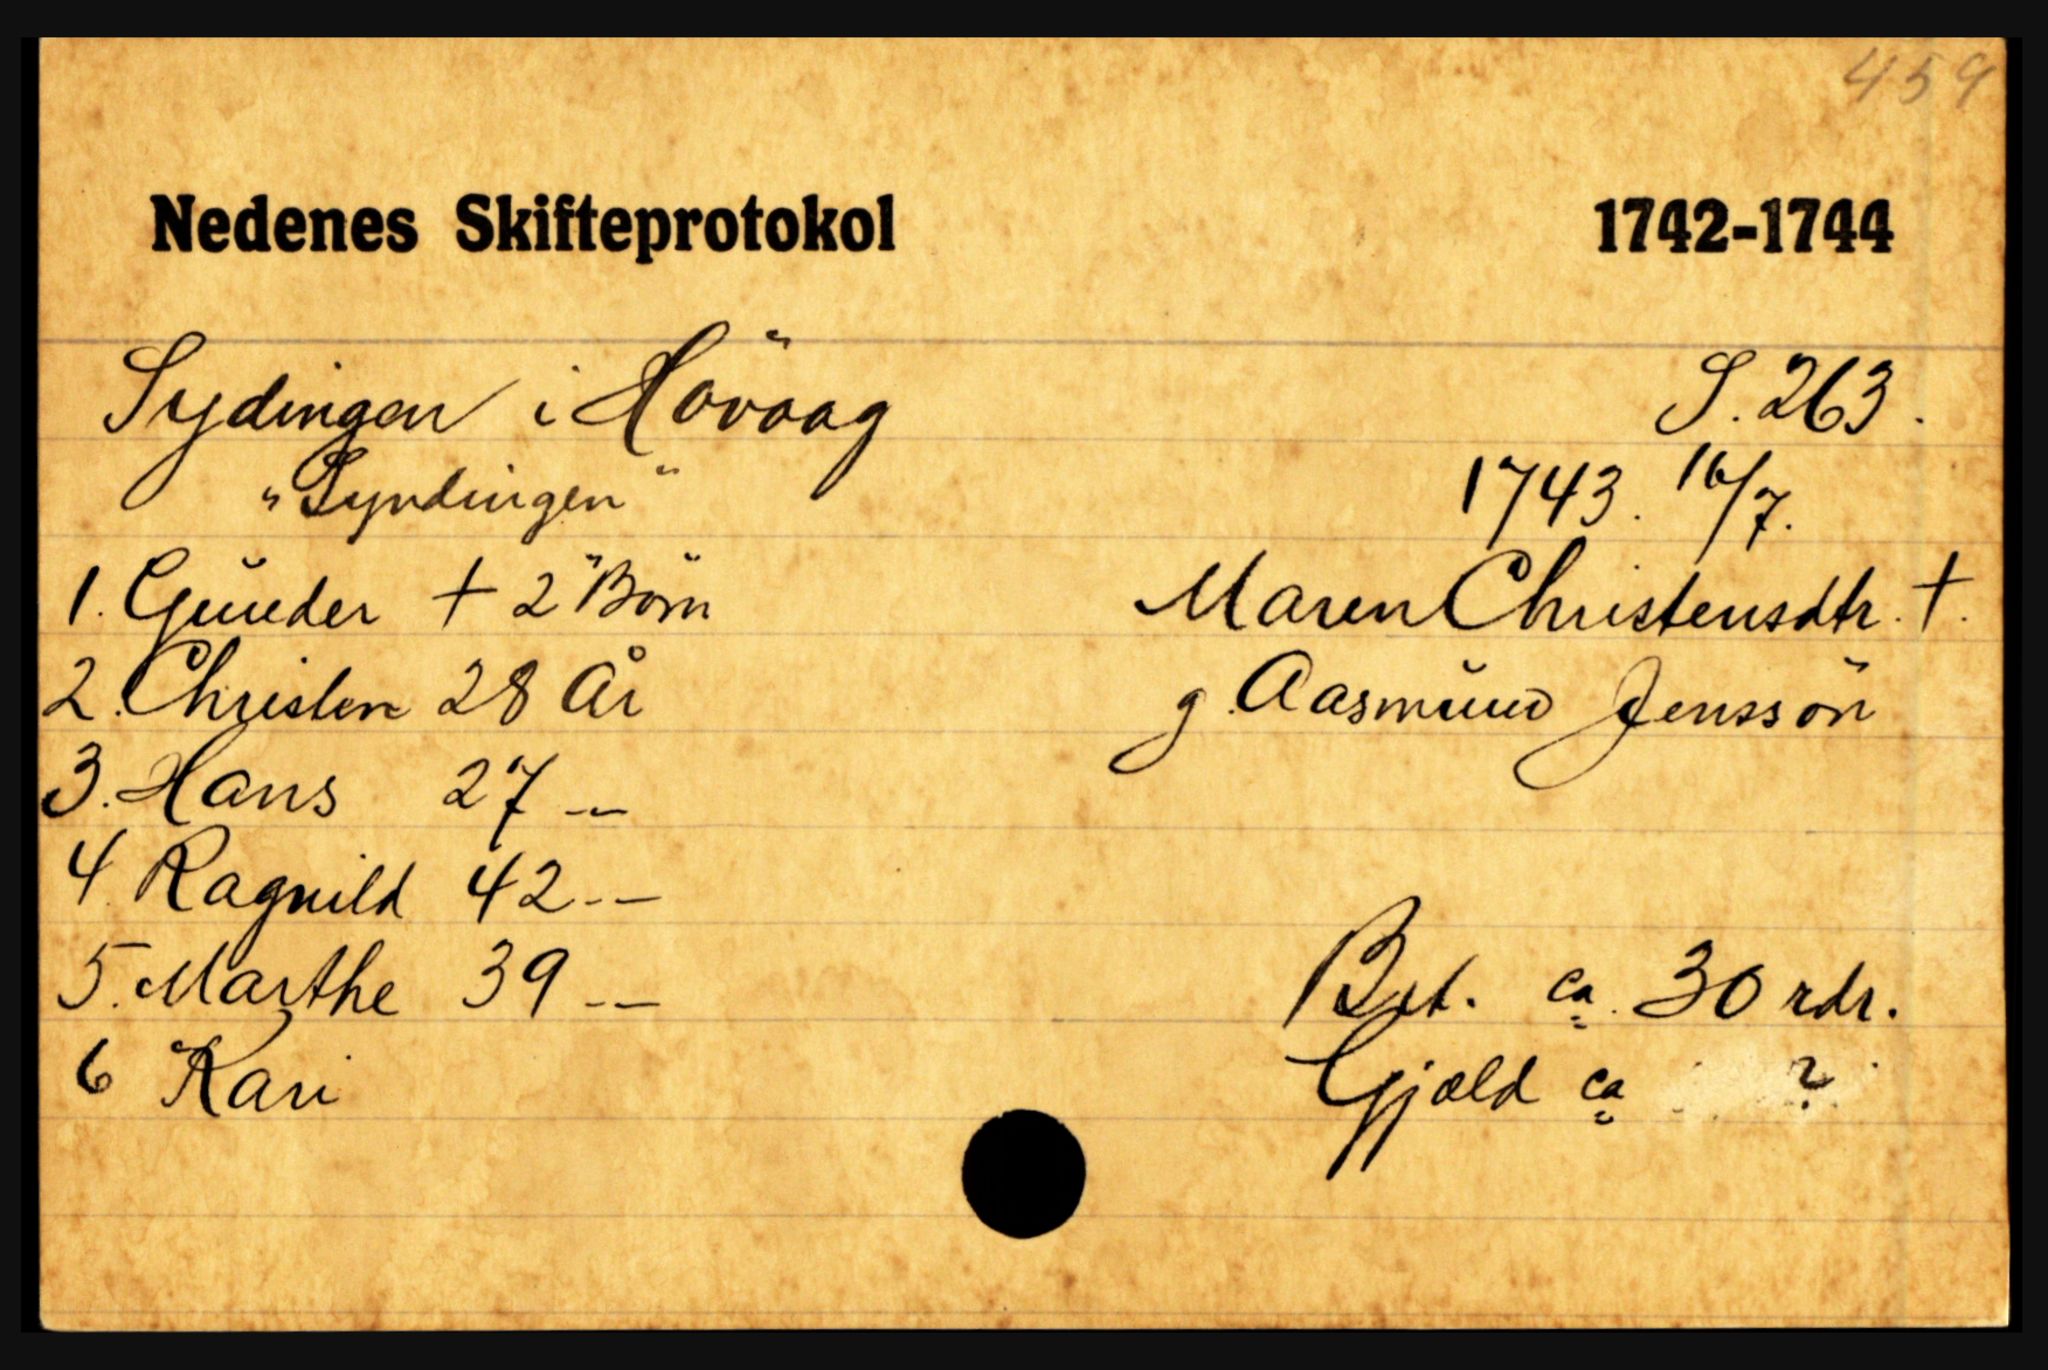 459
Nedenes Skifteprotokol 1742-1744
Sydingen i Hövaag S. 263.
"Syndingen" 1743. 16/7.
1. Gunder + 2 Börn Maren Christensdtr. +.
2. Christen 28 År g. Aasmund Jenssön
3. Hans 27 --
4. Ragnild 42 --
5. Marthe 39 -- Bet. ca. 30 rdr.
6 Kari Gjæld ca ?